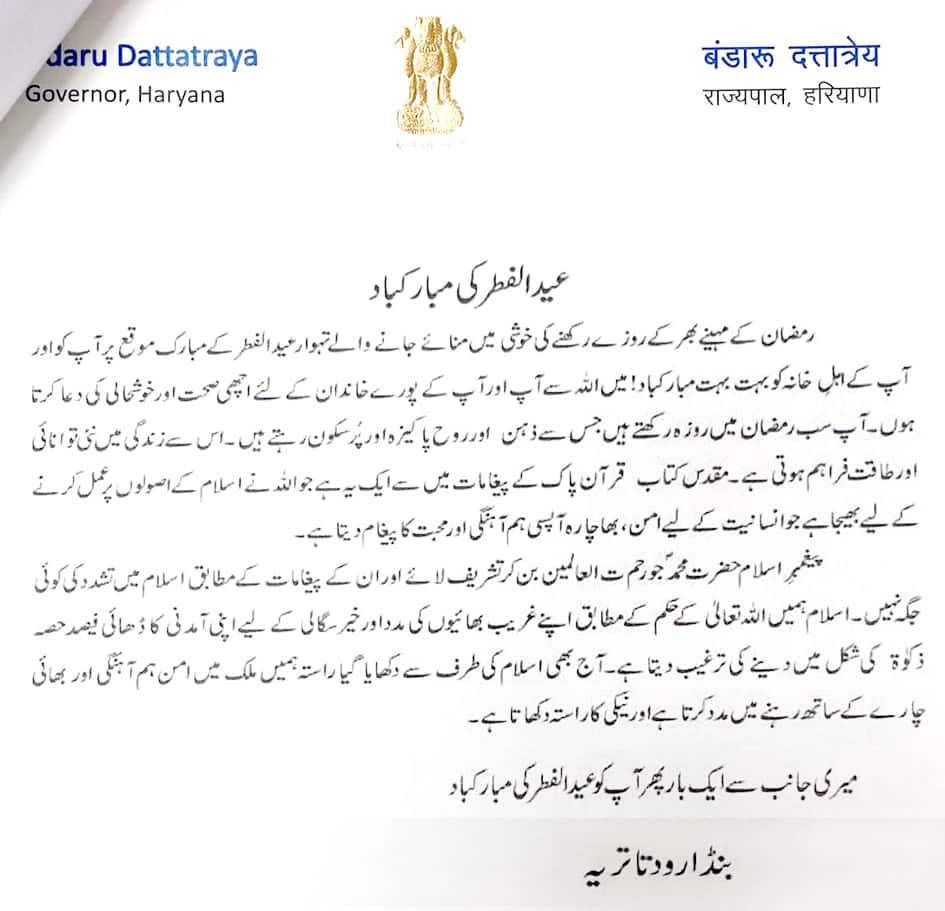 daru Dattatraya
Governor, Haryana
बंडारू दत्तात्रेय
राज्यपाल, हरियाणा
عید الفطر کی مبارکباد
رمضان کے مہینے بھر کے روزے رکھنے کی خوشی میں منائے جانے والے تہوار عید الفطر کے مبارک موقع پر آپ کو اور
آپ کے اہلِ خانہ کو بہت بہت مبارکباد! میں اللہ سے آپ اور آپ کے پورے خاندان کے لئے اچھی صحت اور خوشحالی کی دعا کرتا
ہوں۔ آپ سب رمضان میں روزہ رکھتے ہیں جس سے ذہن اور روح پاکیزہ اور پُرسکون رہتے ہیں۔ اس سے زندگی میں نئی توانائی
اور طاقت فراہم ہوتی ہے۔ مقدس کتاب قرآن پاک کے پیغامات میں سے ایک یہ ہے جو اللہ نے اسلام کے اصولوں پر عمل کرنے
کے لیے بھیجا ہے جو انسانیت کے لیے امن، بھاچارہ آپسی ہم آہنگی اور محبت کا پیغام دیتا ہے۔
پیغمبرِ اسلام حضرت محمدؐ جو رحمت العالمین بن کر تشریف لائے اور ان کے پیغامات کے مطابق اسلام میں تشدد کی کوئی
جگہ نہیں۔ اسلام ہمیں اللہ تعالیٰ کے حکم کے مطابق اپنے غریب بھائیوں کی مدد اور خیر سگالی کے لیے اپنی آمدنی کا ڈھائی فیصد حصہ
ذکوٰۃ کی شکل میں دینے کی ترغیب دیتا ہے۔ آج بھی اسلام کی طرف سے دکھایا گیا راستہ ہمیں ملک میں امن ہم آہنگی اور بھائی
چارے کے ساتھ رہنے میں مدد کرتا ہے اور نیکی کا راستہ دکھاتا ہے۔
میری جانب سے ایک بار پھر آپ کو عید الفطر کی مبارکباد
بنڈارو دتاتریہ